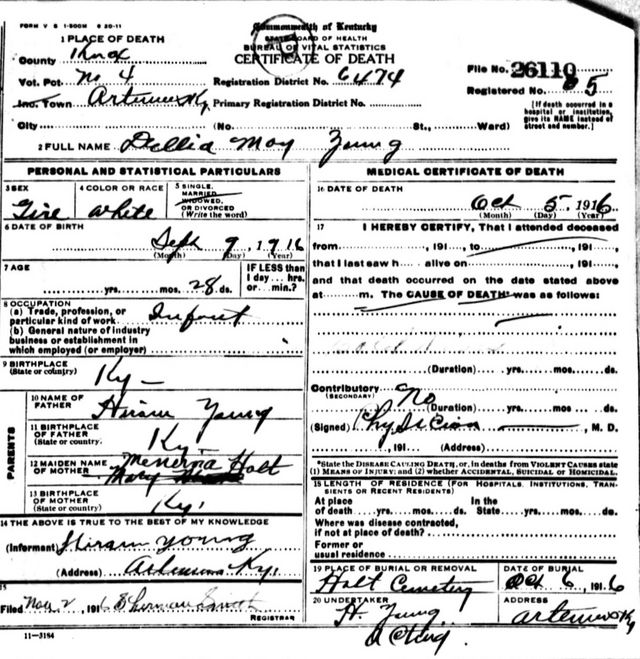 FORM V S 1-500M 8 20-11
Commonwealth of Kentucky
STATE BOARD OF HEALTH
BUREAU OF VITAL STATISTICS
CERTIFICATE OF DEATH
1 PLACE OF DEATH
County Knox
Vot. Pct. No 4 Registration District No. 6474
File No. 26110
Registered No. 85
Inc. Town Artemus Ky Primary Registration District No.
[If death occurred in a hospital or institution, give its NAME instead of street and number.]
City (No. St., Ward)
2 FULL NAME Dellia May Young
PERSONAL AND STATISTICAL PARTICULARS
3 SEX 4 COLOR OR RACE 5 SINGLE, MARRIED, WIDOWED, OR DIVORCED (Write the word)
Girl White
6 DATE OF BIRTH
Sept 9, 1916
(Month) (Day) (Year)
7 AGE IF LESS than
yrs. mos. 28 ds. 1 day hrs. or min.?
8 OCCUPATION
(a) Trade, profession, or
particular kind of work Infant
(b) General nature of industry
business or establishment in
which employed (or employer)
9 BIRTHPLACE
(State or country) Ky-
PARENTS
10 NAME OF
FATHER Hiram Young
11 BIRTHPLACE
OF FATHER
(State or country) Ky-
12 MAIDEN NAME Menerva Holt
OF MOTHER Mary
13 BIRTHPLACE
OF MOTHER
(State or country) Ky.
14 THE ABOVE IS TRUE TO THE BEST OF MY KNOWLEDGE
(Informant) Hiram Young
(Address) Artemus Ky.
15
Filed Nov 2, 1916 Sherman Smith
REGISTRAR
11-3184
MEDICAL CERTIFICATE OF DEATH
16 DATE OF DEATH
Oct 5, 1916
(Month) (Day) (Year)
17 I HEREBY CERTIFY, That I attended deceased
from , 191 , to , 191 ,
that I last saw h alive on , 191 ,
and that death occurred on the date stated above
at m. The CAUSE OF DEATH* was as follows:
(Duration) yrs. mos. ds.
Contributory No
(SECONDARY) (Duration) yrs. mos. ds.
(Signed) Physician , M. D.
, 191 (Address)
*State the DISEASE CAUSING DEATH, or, in deaths from VIOLENT CAUSES state
(1) MEANS OF INJURY; and (2) whether ACCIDENTAL, SUICIDAL or HOMICIDAL.
18 LENGTH OF RESIDENCE (FOR HOSPITALS, INSTITUTIONS, TRANSIENTS OR RECENT RESIDENTS)
At place In the
of death yrs. mos. ds. State yrs. mos. ds.
Where was disease contracted,
if not at place of death?
Former or
usual residence
19 PLACE OF BURIAL OR REMOVAL DATE OF BURIAL
Holt Cemetery Oct 6, 1916
20 UNDERTAKER ADDRESS
H. Young Artemus Ky
Acting.